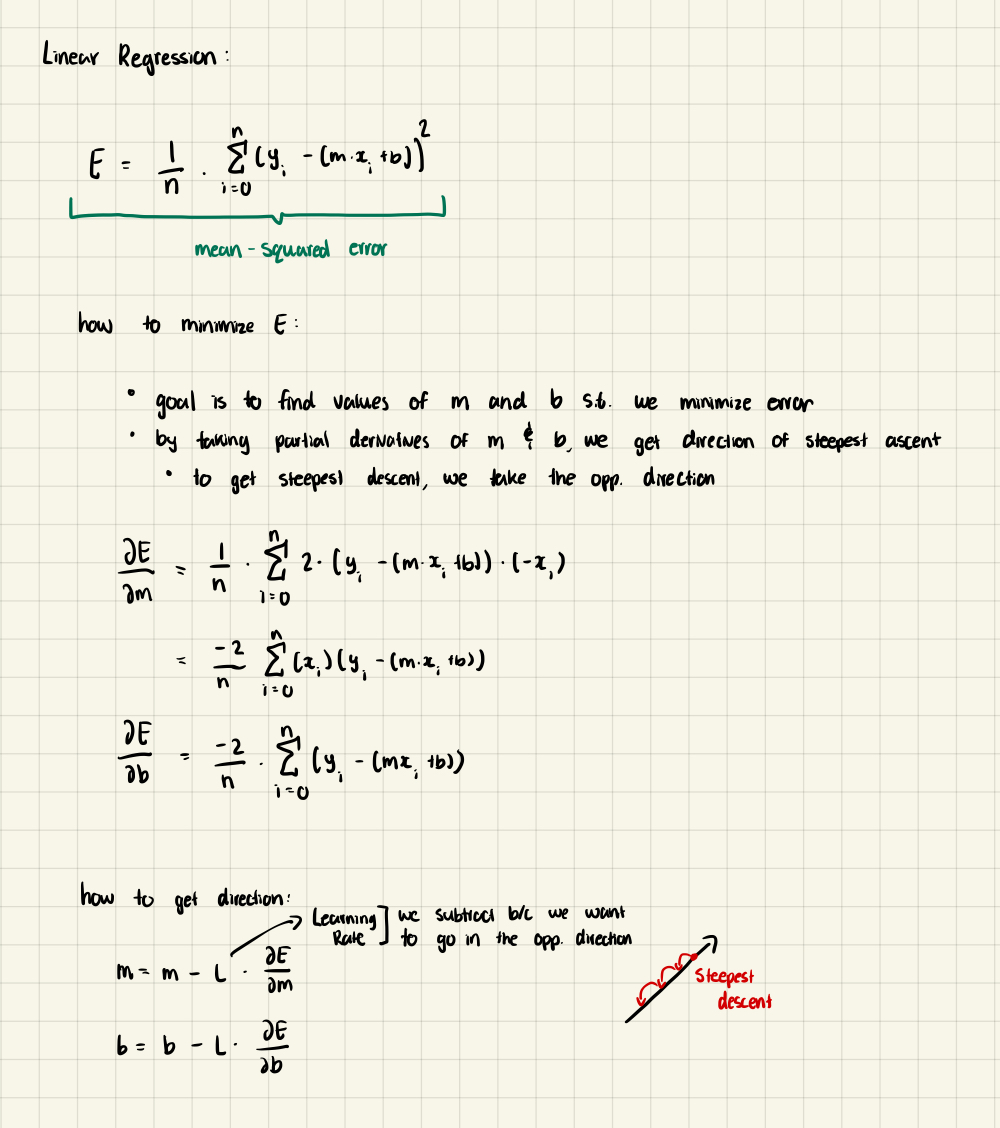 Linear Regression:
E = 1/n · Σ_{i=0}^{n} (y_i - (m·x_i + b))^2
mean-squared error
how to minimize E:
• goal is to find values of m and b s.t. we minimize error
• by taking partial derivatives of m & b, we get direction of steepest ascent
• to get steepest descent, we take the opp. direction
∂E/∂m = 1/n · Σ_{i=0}^{n} 2·(y_i - (m·x_i + b))·(-x_i)
= -2/n Σ_{i=0}^{n} (x_i)(y_i - (m·x_i + b))
∂E/∂b = -2/n · Σ_{i=0}^{n} (y_i - (mx_i + b))
how to get direction:
Learning Rate ] we subtract b/c we want
to go in the opp. direction
m = m - L · ∂E/∂m
steepest
descent
b = b - L · ∂E/∂b